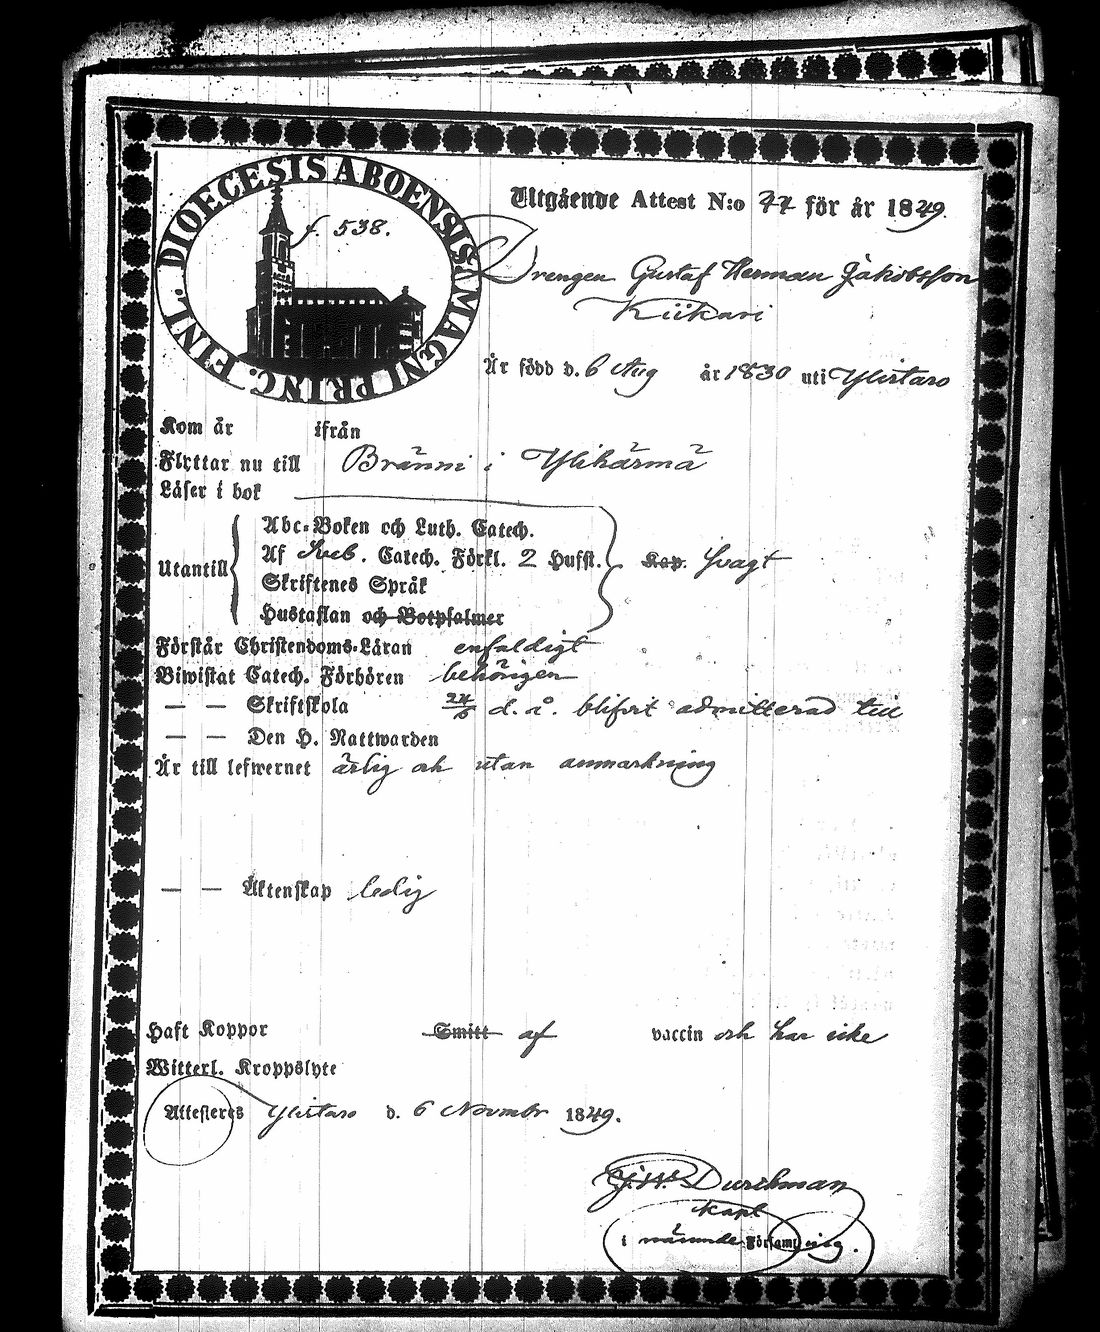 DIOECESIS ABOENSIS MAGNI PRINC. FINL.
f. 538.
Utgående Attest N:o 77 för år 1849.
Drengen Gustaf Herman Jakobsson
Kiikari
Är född d. 6 Aug år 1830 uti Ylistaro
Kom år ifrån
Flyttar nu till Bränni i Ylihärmä
Läser i bok
Abc-Boken och Luth. Catech.
Utantill Af Sveb. Catech. Förkl. 2 Hufst. Kap. svagt
Skriftenes Språk
Hustaflan och Botpsalmer
Förstår Christendoms-Läran enfaldigt
Biwistat Catech. Förhören behörigen
— — Skriftskola 24/6 d. å. blifvit admitterad till
— — Den H. Nattwarden
Är till lefwernet ärlig och utan anmärkning
— — Äktenskap ledig
Haft Koppor Smitt af vaccin och har icke
Witterl. Kroppslyte
Attesteras Ylistaro d. 6 Novmbr 1849.
Durchman
Kapl
i nämnde Församling.